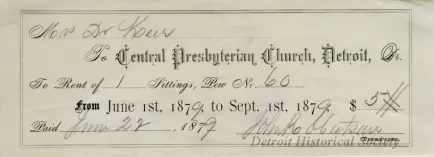 Mrs Dr Keir
To Central Presbyterian Church, Detroit, Dr.
To Rent of 1 Sittings, Pew No. 60
From June 1st, 1879 to Sept. 1st, 1879 $ 5
Paid June 22, 1879
Detroit Historical Society
Treasurer.